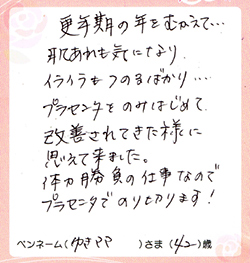 更年期の年をむかえて…
肌あれも気になり
イライラもつのるばかり….
プラセンタをのみはじめて
改善されてきた様に
思えて来ました。
体力勝負の仕事なので
プラセンタでのり切ります!
ペンネーム(ゆきママ)さま(42)歳